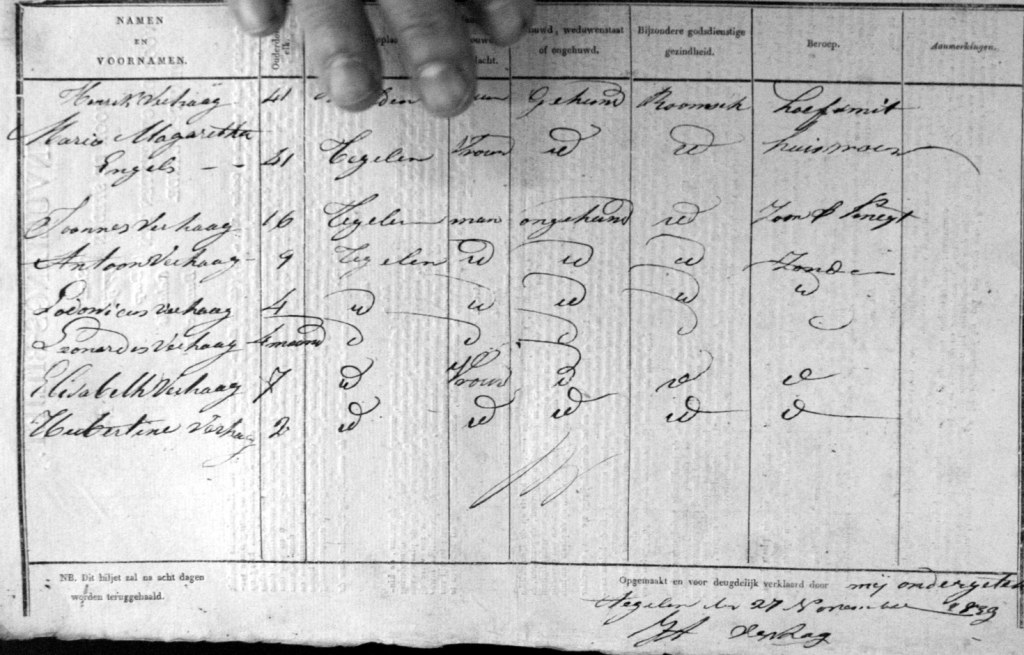 NAMEN EN VOORNAMEN. Ouderdom elk. houwd, weduwenstaat of ongehuwd. Bijzondere godsdienstige gezindheid. Beroep. Aanmerkingen.
Henrik Verhaag 41 Gehuud Roomsch hoefsmit
Maria Magaretha
Engels -- 41 Tegelen Vrouw id id huisvrouw
Joannes Verhaag 16 Tegelen man ongehuud id Zoon & Kneyt
Antoon Verhaag 9 Tegelen id id id Zonde
Lodovicus Verhaag 4 id id id id id
Leonardes Verhaag 4 maand
Elisabeth Verhaag 7 id Vrouw id id id
Hubertine Verhaag 2 id id id id id
NB. Dit biljet zal na acht dagen
worden teruggehaald.
Opgemaakt en voor deugdelijk verklaard door mij ondergetek
Tegelen den 27 November 1839
Verhaag